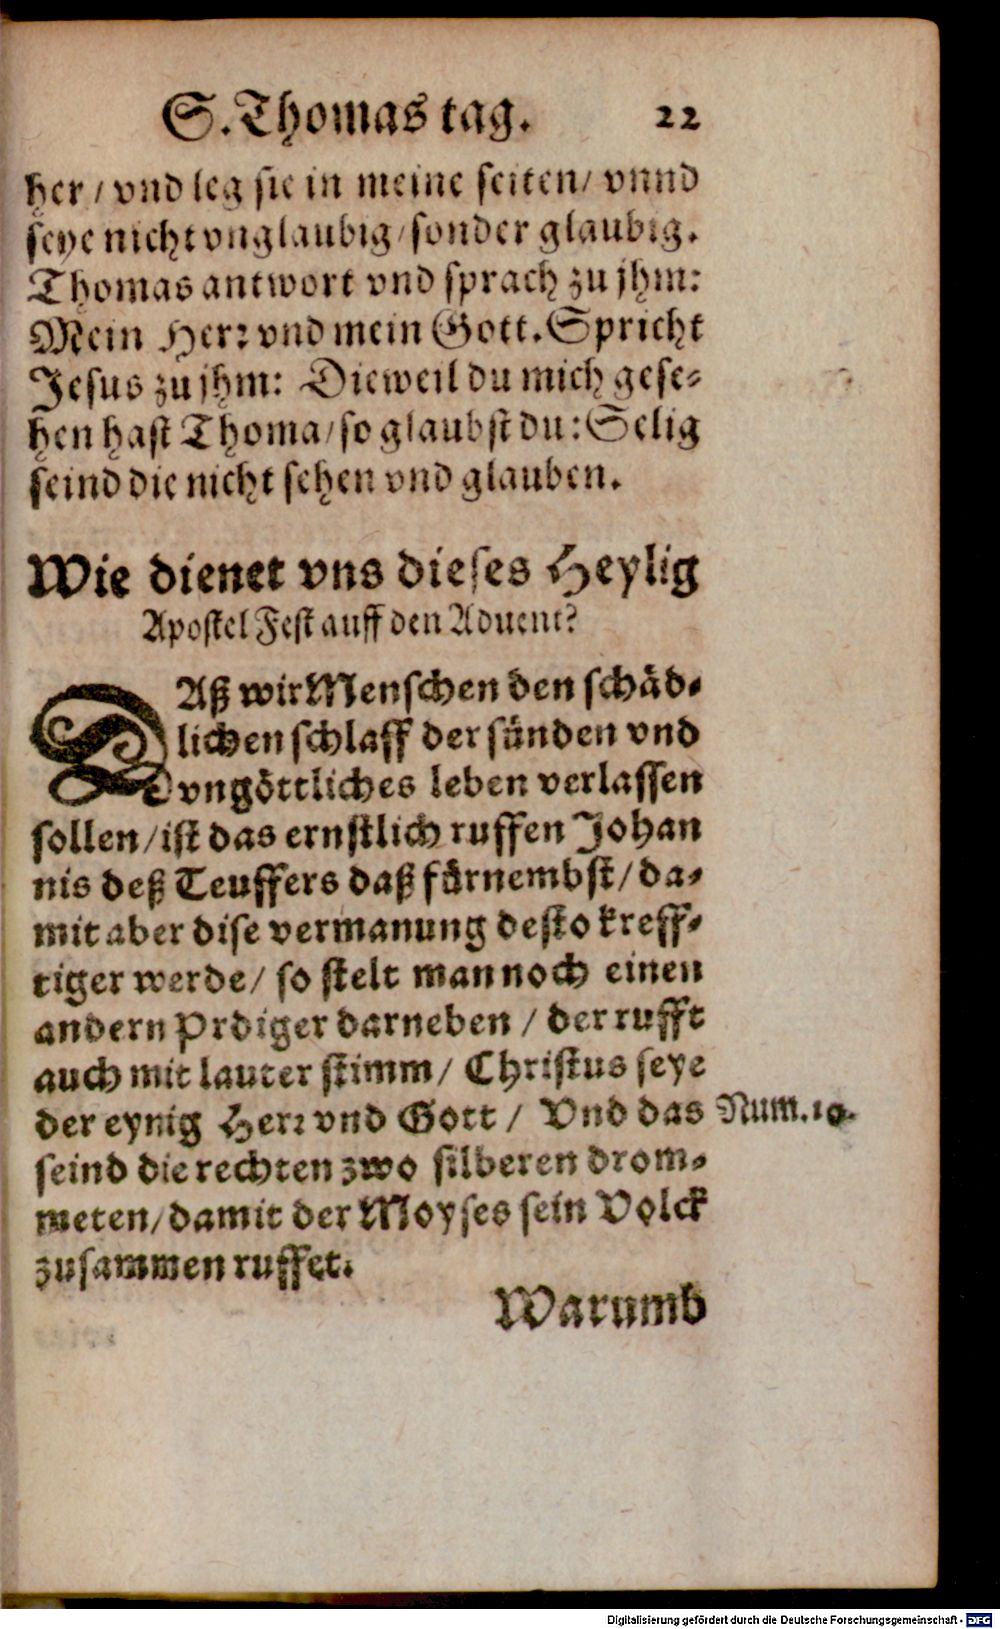 S. Thomas tag. 22
her / vnd leg sie in meine seiten / vnnd
seye nicht vnglaubig / sonder glaubig.
Thomas antwort vnd sprach zu jhm:
Mein Herr vnd mein Gott. Spricht
Jesus zu jhm: Dieweil du mich gese-
hen hast Thoma / so glaubst du: Selig
seind die nicht sehen vnd glauben.
Wie dienet vns dieses Heylig
Apostel Fest auff den Aduent?
DAß wir Menschen den schäd-
lichen schlaff der sünden vnd
vngöttliches leben verlassen
sollen / ist das ernstlich ruffen Johan
nis deß Teuffers daß fürnembst / da-
mit aber dise vermanung desto kreff-
tiger werde / so stelt man noch einen
andern Prdiger darneben / der rufft
auch mit lauter stimm / Christus seye
der eynig Herr vnd Gott / Vnd das Num. 10.
seind die rechten zwo silberen drom-
meten / damit der Moyses sein Volck
zusammen ruffet.
Warumb
Digitalisierung gefördert durch die Deutsche Forschungsgemeinschaft - DFG